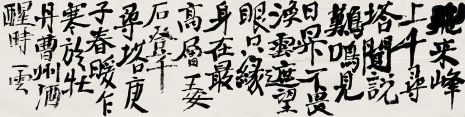 飛来峰
上千尋
塔聞說
鷄鳴見
日昇不畏
浮雲遮望
眼只緣
身在最
高層王安
石登千
尋塔庚
子春暖乍
寒於牡
丹曹州酒
醒時一雲